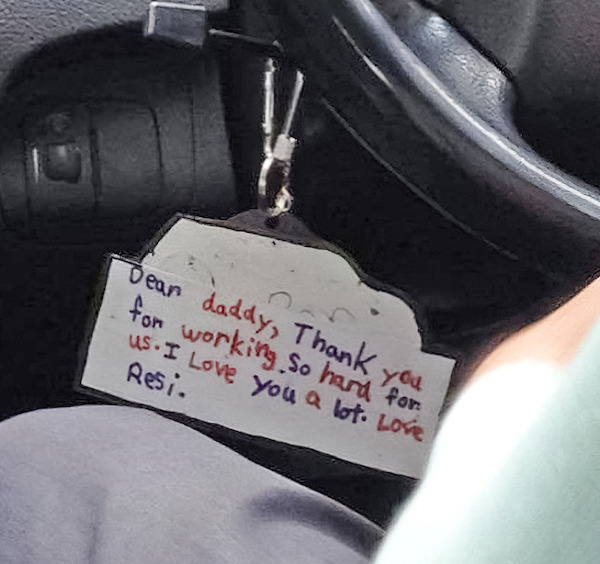 Dear daddy, Thank you
for working.So hard for
us. I Love you a lot. Love
Resi.